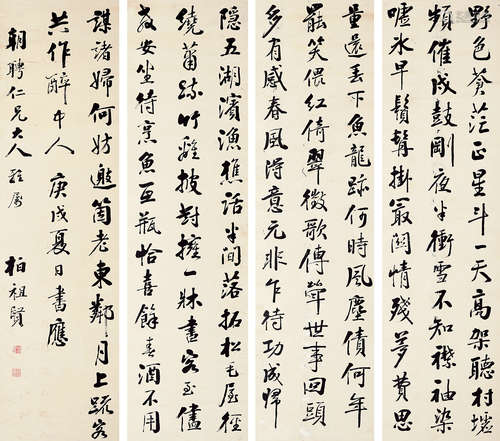 野色蒼茫正星斗一天高架聽村墟
頻催戍鼓剛夜半衝雪不知襟袖染
嘘氷早鬚髯掛最關情殘夢費思
量還丟下魚龍跡何時風塵債何年
罷笑偎紅倚翠徵歌傳聲世事回頭
多有感春風得意元非乍待功成歸
隱五湖濱漁樵話半間落拓松毛屋徑
繞蕭疏竹 披對擁一牀書客至儘
教安坐待烹魚瓦瓶恰喜餘春酒不用
謀諸婦何妨邀箇老東鄰月上疏客
共作醉中人 庚戌夏日書應
朝聘仁兄大人雅屬 柏祖賢